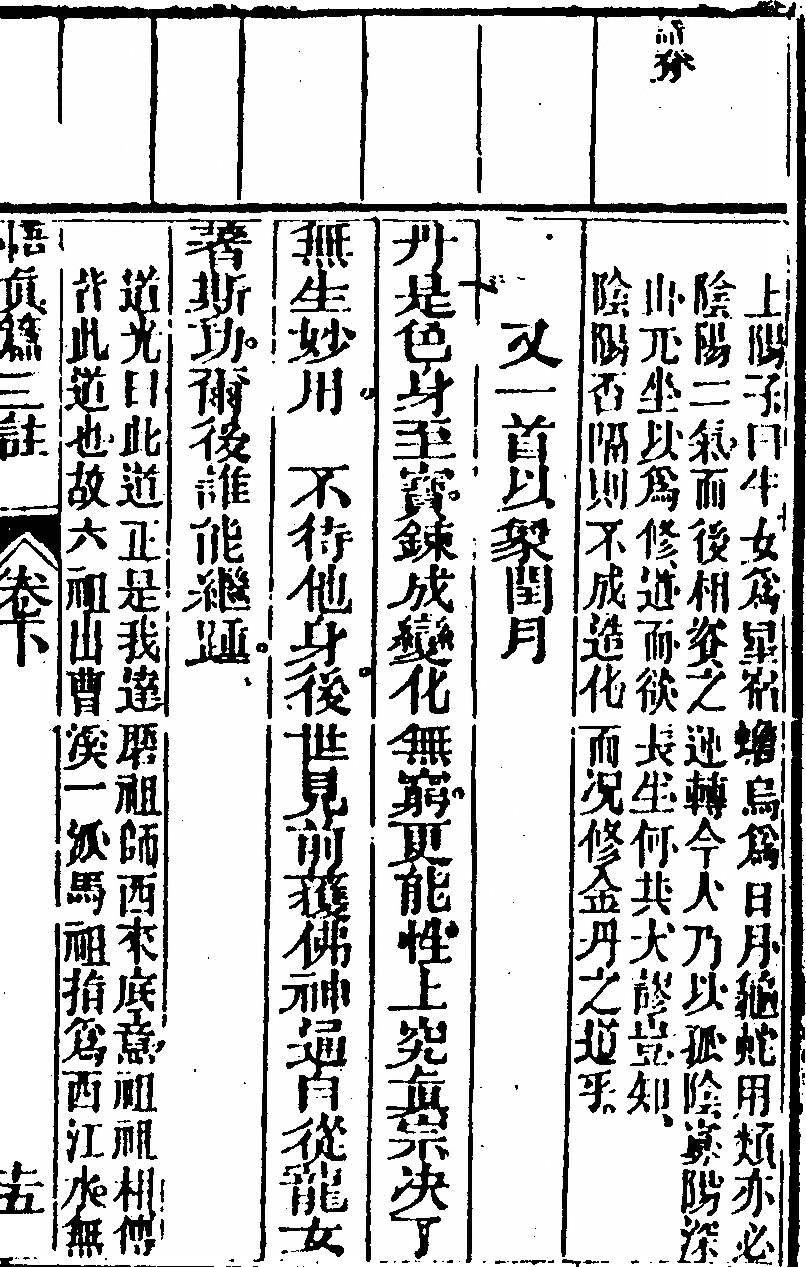 上陽子曰牛女爲星宿蟾烏爲日月龜蛇用類亦必
陰陽二氣而後相資之運轉今人乃以孤陰寡陽深
山兀坐以爲修道而欲長生何其大謬豈知
陰陽否隔則不成造化而况修金丹之道乎
又一首以象閏月
丹是色身至寶鍊成變化無窮更能性上究眞宗決了
無生妙用 不待他身後世見前獲佛神通自從龍女
著斯功爾後誰能繼踵
道光曰此道正是我達磨祖師西來底意祖祖相傳
皆此道也故六祖出曹溪一派馬祖指爲西江水無
悟眞篇三註 卷下 十五